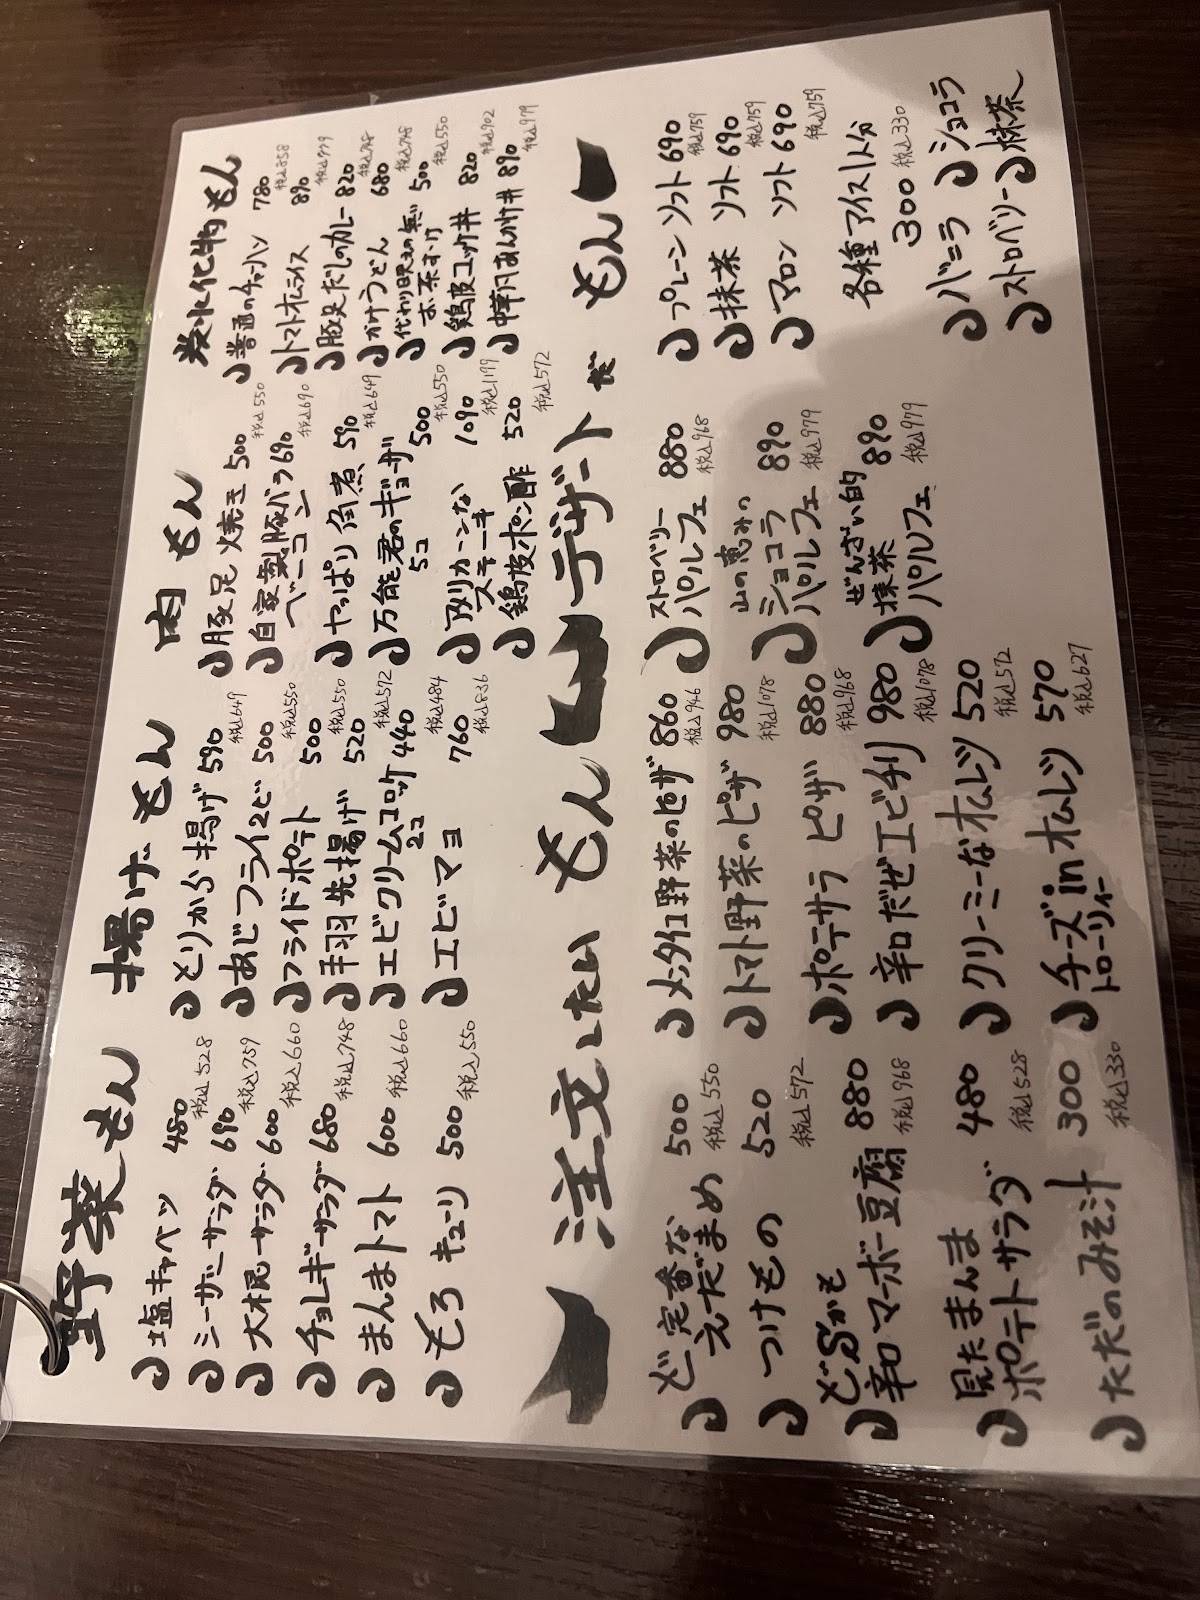 野菜もん
塩キャベツ 480
税込528
シーザーサラダ 690
税込759
大根サラダ 600
税込660
チョレギサラダ 680
税込748
まんまトマト 600
税込660
もろキューリ 500
税込550
揚げもん
とりから揚げ 590
税込649
あじフライ2ピ 500
税込550
フライドポテト 500
税込550
手羽先揚げ 520
税込572
エビクリームコロッケ 440
2コ
税込484
エビマヨ 760
税込836
肉もん
豚足焼き 500
税込550
自家製豚バラ 690
ベーコン
税込690
やっぱり角煮 590
税込649
万能君のギョーザ 500
5コ
税込550
アメリカーンな
ステーキ 1090
税込1199
鶏皮ポン酢 520
税込572
炭水化物もん
普通のチャーハン 780
税込858
トマトオムライス 890
税込979
豚足だしのカレー 820
かけうどん 680
税込748
代わり映えの無い
お茶づけ 500
税込550
鶏皮ユッケ丼 820
税込902
中華風あんかけ丼 890
税込979
注文したいもん
ど定番な
えだまめ 500
税込550
つけもの 520
税込572
どSかも
辛口マーボー豆腐 880
税込968
見たまんま
ポテトサラダ 480
税込528
ただのみそ汁 300
税込330
メンタイコ野菜のピザ 860
税込946
トマト野菜のピザ 980
税込1078
ポテサラピザ 880
税込968
辛口だぜエビチリ 980
税込1078
クリーミーなオムレツ 520
税込572
チーズinオムレツ 570
トローリィー
税込627
デザートだもん
ストロベリー
パルフェ 880
税込968
山の恵みの
ショコラ
パルフェ 890
税込979
ぜんざい的
抹茶
パルフェ 890
税込979
プレーンソフト 690
税込759
抹茶ソフト 690
税込759
マロンソフト 690
税込759
各種アイス1ト分
300 税込330
バニラ ショコラ
ストロベリー 抹茶